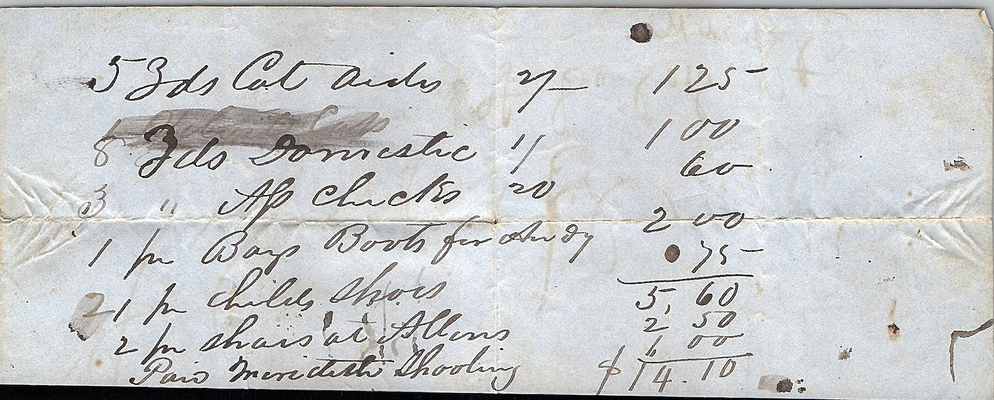 5 Yds Cot 2/ 1 25
8 Yds Domestic 1/ 1 00
3 " Ap checks 20 60
1 pr Boys Boots for Andy 2 00
1 pr childs shoes 75
5,60
2 pr shoes at Allens 2 50
Paid Meredith Shooling 6 00
$14.10